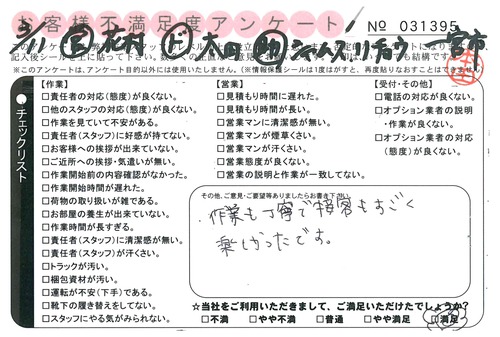 お客様不満足度アンケート
№ 031395
3/11 花村 太田 一宮市
※このアンケートは、アンケート目的以外には使用いたしません。(※情報保護シールは1度がはすと、再度貼りなおすことはできません。
チェックリスト
【作業】
□責任者の対応(態度)が良くない。
□他のスタッフの対応(態度)が良くない。
□作業を見ていて不安がある。
□責任者(スタッフ)に好感が持てない。
□お客様への挨拶が出来ていない。
□ご近所への挨拶・気遣いが無い。
□作業開始前の内容確認がなかった。
□作業開始時間が遅れた。
□荷物の取り扱いが雑である。
□お部屋の養生が出来ていない。
□作業時間が長すぎる。
□責任者(スタッフ)に清潔感が無い。
□責任者(スタッフ)が汗くさい。
□トラックが汚い。
□梱包資材が汚い。
□運転が不安(下手)である。
□靴下の履き替えをしていない。
□スタッフにやる気がみられない。
【営業】
□見積もり時間に遅れた。
□見積もり時間が長い。
□営業マンに清潔感が無い。
□営業マンが煙草くさい。
□営業マンが汗くさい。
□営業態度が良くない。
□営業の説明と作業が一致してない。
【受付・その他】
□電話の対応が良くない。
□オプション業者の説明
・作業が良くない。
□オプション業者の対応
(態度)が良くない。
その他、ご意見・ご要望等ありましたらお書き下さい。
作業も丁寧で接客もすごく
楽しかったです。
☆当社をご利用いただきまして、ご満足いただけたでしょうか?
□不満 □やや不満 □普通 □やや満足 □満足